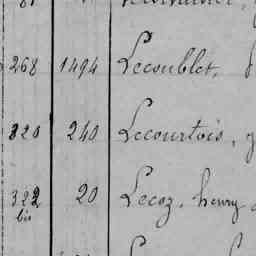 268 1494 Lecoublet,
320 240 Lecourtois,
322 20 Lecoz, henry
bis